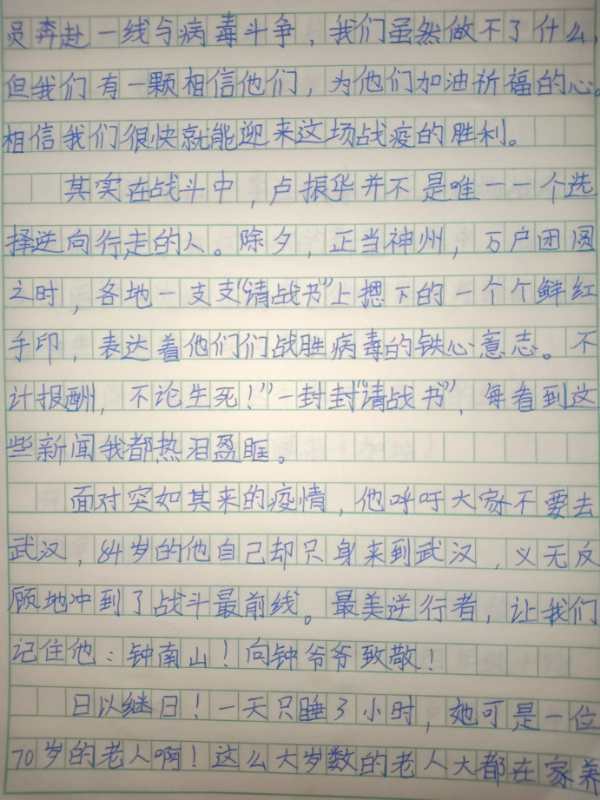 员奔赴一线与病毒斗争，我们虽然做不了什么，
但我们有一颗相信他们，为他们加油祈福的心。
相信我们很快就能迎来这场战疫的胜利。
其实在战斗中，卢振华并不是唯一一个选
择逆向行走的人。除夕，正当神州，万户团圆
之时，各地一支支“请战书”上摁下的一个个鲜红
手印，表达着他们们战胜病毒的铁心意志。不
计报酬，不论生死！”一封封“请战书”，每看到这
些新闻我都热泪盈眶。
面对突如其来的疫情，他呼吁大家不要去
武汉，84岁的他自己却只身来到武汉，义无反
顾地冲到了战斗最前线。最美逆行者，让我们
记住他：钟南山！向钟爷爷致敬！
日以继日！一天只睡3小时，她可是一位
70岁的老人啊！这么大岁数的老人大都在家养